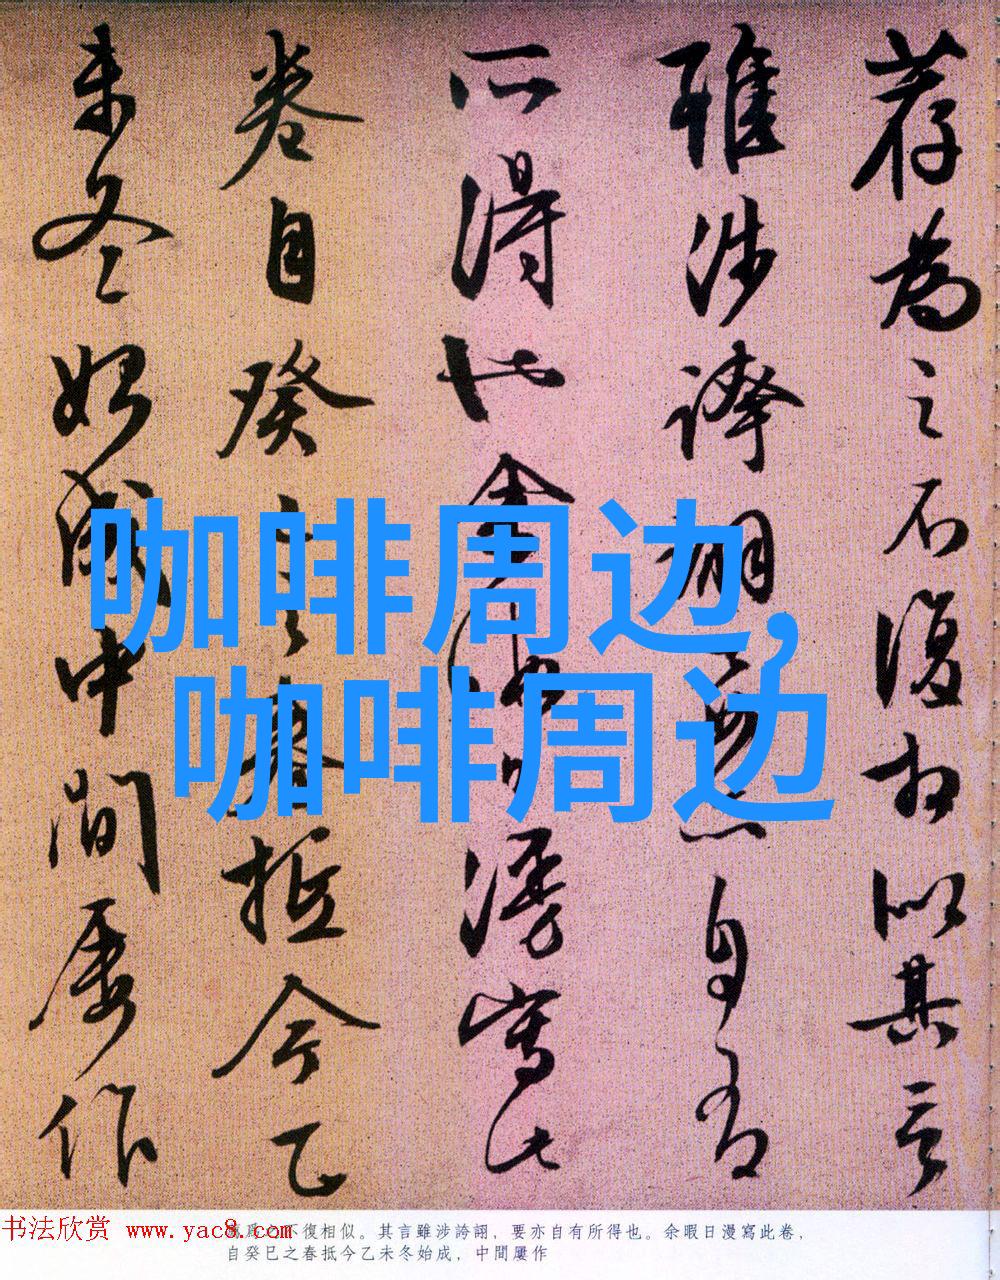 荐為之不復相似其言
雖涉誇詡要亦自有
所得也余暇日漫寫此
卷自癸巳之春抵今乙
未冬始成中間屢作
咖啡周边,
咖啡周边
书法欣赏 www.yac8.com
為之不復相似。其言雖涉誇詡，要亦自有所得也。余暇日漫寫此卷，
自癸巳之春抵今乙未冬始成，中間屢作